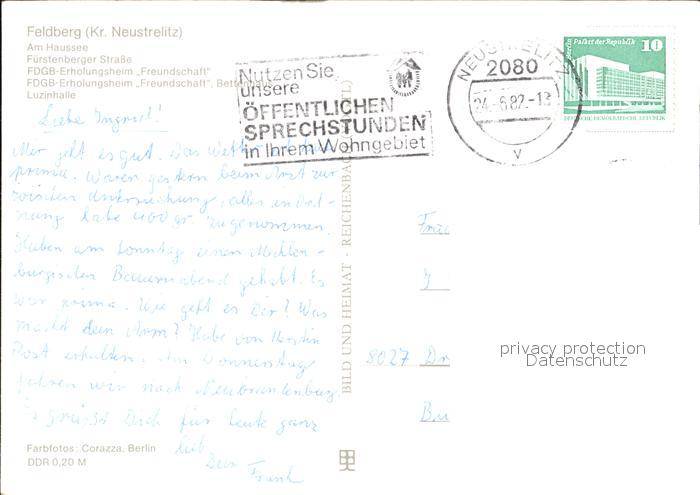 Feldberg (Kr. Neustrelitz)
Am Haussee
Fürstenberger Straße
FDGB-Erholungsheim „Freundschaft"
FDGB-Erholungsheim „Freundschaft", Bettenhaus
Luzinhalle
Liebe Ingrid!
Mir geht es gut. Das Wetter ist
prima. Waren gestern beim Arzt zur
zwischen Untersuchung, alles in Ord-
nung habe 400 gr. zugenommen.
Haben am Sonntag einen Mecklen-
burgischen Bauernabend gehabt. Es
war prima. Wie geht es Dir? Was
macht dein Arm? Habe von Kerstin
Post erhalten. Am Donnerstag
fahren wir nach Neubrandenburg.
Es grüsst Dich für heute ganz
lieb
Dein Frank
Farbfotos: Corazza, Berlin
DDR 0,20 M
BILD UND HEIMAT · REICHENBACH
Nutzen Sie
unsere
ÖFFENTLICHEN
SPRECHSTUNDEN
in Ihrem Wohngebiet
NEUSTRELITZ
2080
24.-6.82.-13
v
Berlin Palast der Republik 10
DEUTSCHE DEMOKRATISCHE REPUBLIK
8027 Dr
privacy protection
Datenschutz